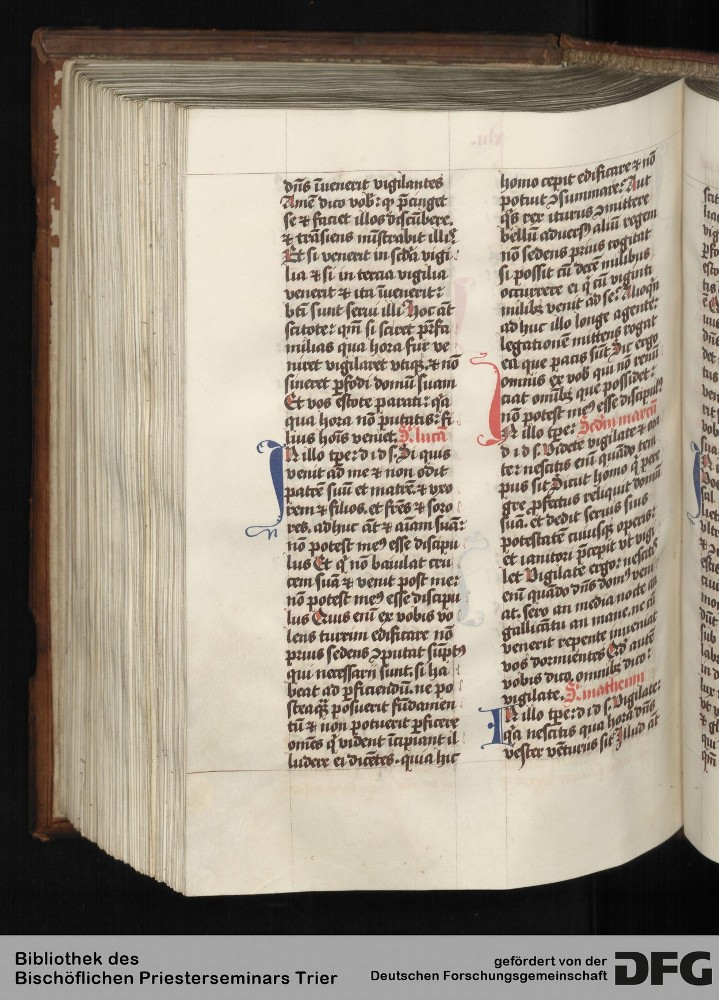 dn̄s īuenerit vigilantes
Amē dico vob᷒: qꝫ p̄cinget
se ⁊ faciet illos discūbere,
⁊ trāsiens mīstrabit illi᷒
Et si venerit in scd̄a vigi
lia ⁊ si in tercia vigilia
venerit ⁊ ita īuenerit:
bt̄i sunt serui illi Hoc āt
scitote: qm̄ si sciret pr̄fa
milias qua hora fur ve
niret vigilaret vtiqꝫ ⁊ nō
sineret ꝑfodi domū suam
Et vos estote parati: q̇a
qua hora nō putatis: fi
lius hoīs veniet. S. lucā
IN illo tꝑe: d ih̄s d s. Si quis
venit ad me ⁊ non odit
patrē suū et matrē: ⁊ vxo
rem ⁊ filios. et fr̄es ⁊ soro
res. adhuc āt ⁊ aīam suā:
nō potest meꝰ esse discipu
lus Et q̇ nō baiulat cru
cem suā ⁊ venit post me:
nō potest meꝰ esse discipu
lus Quis enī ex vobis vo
lens turrim edificare nō
prius sedens ꝯputat sūptꝰ
qui necessarii sunt: si ha
beat ad ꝑficiendū. ne po
steaqꝫ posuerit fūdamen
tū ⁊ non potuerit ꝑficere
om̄es q̇ vident īcipiant il
ludere ei dicētes. quia hic
homo cepit edificare ⁊ nō
potuit ꝯsummare: Aut
q̇s rex iturus ꝯmittere
bellū aduersꝰ aliū regem
nō sedens prius cogitat
si possit cū decē milibus
occurrere ei q̇ cū viginti
milibꝫ venit ad se: Alioqn̄
adhuc illo longe agente:
legationē mittens rogat
ea que pacis sūt Sic ergo
omnis ex vob᷒ qui nō renū
ciat omībꝫ que possidet:
nō potest meꝰ esse discipulꝰ
IN illo tꝑe: Scd̄m marcū
d ih̄s d s. Videte vigilate ⁊ ora
te: nescitis enī quādo tem
pus sit Sicut homo q̇ pere
gre ꝓfectus reliquit domū
suā. et dedit seruis suis
potestatē cuiusqꝫ operis:
et ianitori p̄cepit vt vigi
let Vigilate ergo: nescitis
enī quādo dn̄s domꝰ veni
at. sero an media nocte an
gallicātu an mane. ne cū
venerit repente inueniat
vos dormientes Qd̄ autē
vobis dico. omnibꝫ dico:
vigilate. S. matheum
IN illo tꝑe: d ih̄s d s. Vigilate:
q̇a nescitis qua hora dn̄s
vester vēturus sit Illud āt
Bibliothek des
Bischöflichen Priesterseminars Trier
gefördert von der
Deutschen Forschungsgemeinschaft
DFG